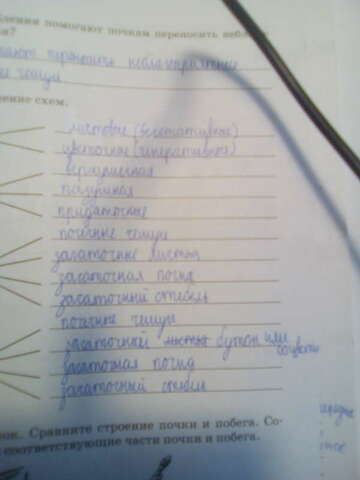 бления помогают почкам переносить небл
я?
ают переносить неблагоприятные
е чешуи
ение схем.
листовые (вегетативное)
цветочное (генеративное)
верхушечная
пазушная
придаточные
почечные чешуи
зачаточные листья
зачаточная почка
зачаточный стебель
почечные чешуи
зачаточный бутон или
соцветие
зачаточная почка
зачаточный стебель
нок. Сравните строение почки и побега. Со-
соответствующие части почки и побега.